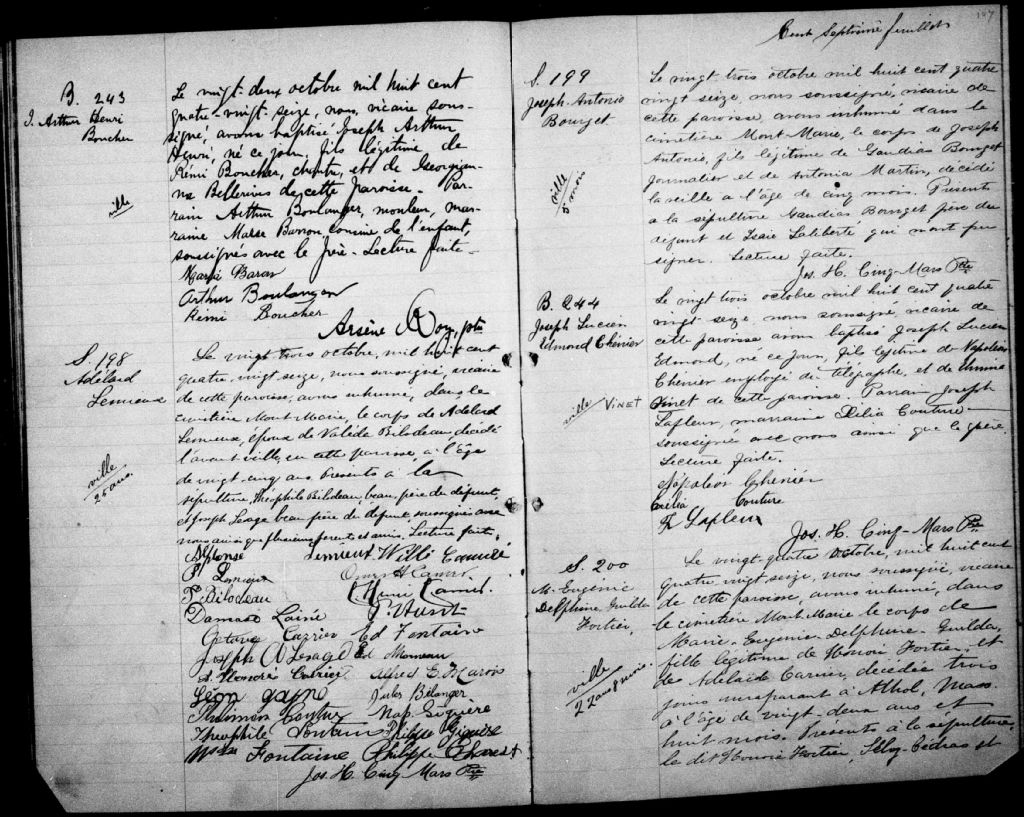 B. 243
J. Arthur Henri
Boucher
ville
Le vingt deux octobre mil huit cent
quatre-vingt-seize, nous, vicaire sous-
signé, avons baptisé Joseph Arthur
Henri, né ce jour, fils légitime de
Rémi Boucher, peintre, et de Georgian-
na Bellerive de cette paroisse. Par-
rain Arthur Boulanger, mouleur, mar-
raine Marie Baron cousine de l'enfant,
soussignés avec le père. Lecture faite.
Marie Baron
Arthur Boulanger
Rémi Boucher
Arsène Roy, ptre
S. 198
Adélard
Lemieux
ville
25 ans.
Le vingt trois octobre, mil huit cent
quatre-vingt-seize, nous soussigné, vicaire
de cette paroisse, avons inhumé, dans le
cimetière Mont-Marie, le corps de Adélard
Lemieux, époux de Valéda Bilodeau, décédé
l'avant veille, en cette paroisse, à l'âge
de vingt-cinq ans. Présents à la
sépulture, Théophile Bilodeau, beau-père du défunt,
et Joseph Lesage beau-frère du défunt soussignés avec
nous ainsi que plusieurs parents et amis. Lecture faite.
Alphonse Lemieux Willé
P. Lemieux
P. Bilodeau
Damase Lainé P. Hunt
Octave Carrier Ed Fontaine
Joseph A Lesage Ed Morneau
A. Honoré Carrier Alfred E. Marois
Léon Gagné Jules Bélanger
Philimon Couture Nap. Giguère
Theophile Fontaine Philippe Giguère
Fontaine Philippe Charest
Jos. H. Cinq-Mars Ptre
Cent Septième feuillet
107
S. 199
Joseph-Antonio
Bourget
ville
5 mois
Le vingt trois octobre mil huit cent quatre
vingt seize, nous soussigné, vicaire de
cette paroisse, avons inhumé dans le
cimetière Mont-Marie, le corps de Joseph
Antonio, fils légitime de Gaudias Bourget
journalier et de Antonia Martin, décédé
la veille à l'âge de cinq mois. Présents
à la sépulture Gaudias Bourget père du
défunt et Isaïe Laliberté qui n'ont pu
signer. Lecture faite.
Jos. H. Cinq-Mars Ptre
B. 244
Joseph Lucien
Edmond Chénier
ville VINET
Le vingt trois octobre mil huit cent quatre
vingt seize, nous soussigné, vicaire de
cette paroisse avons baptisé Joseph Lucien
Edmond, né ce jour, fils légitime de Napoléon
Chénier employé de télégraphe, et de
Vinet de cette paroisse. Parrain Joseph
Lafleur, marraine Délia Couture
soussignés avec nous ainsi que le père.
Lecture faite.
Napoléon Chénier
Délia Couture
Lafleur
Jos. H. Cinq-Mars Ptre
S. 200
M. Eugénie
Delphine Guilda
Fortier,
ville
22 ans 8 mois.
Le vingt-quatre octobre, mil huit cent
quatre-vingt-seize, nous soussigné, vicaire
de cette paroisse, avons inhumé, dans
le cimetière Mont-Marie le corps de
Marie-Eugénie-Delphine-Guilda,
fille légitime de Honoré Fortier, et
de Adelaïde Carrier, décédée trois
jours auparavant à Athol, Mass.
à l'âge de vingt-deux ans et
huit mois. Présents à la sépulture,
le dit Honoré Fortier, et